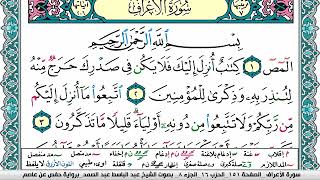 سُورَةُ الأَعْرَافِ
بِسْمِ اللَّهِ الرَّحْمَٰنِ الرَّحِيمِ
الٓمٓصٓ ١ كِتَٰبٌ أُنزِلَ إِلَيْكَ فَلَا يَكُن فِي صَدْرِكَ حَرَجٌ مِّنْهُ
لِتُنذِرَ بِهِۦ وَذِكْرَىٰ لِلْمُؤْمِنِينَ ٢ ٱتَّبِعُوا۟ مَآ أُنزِلَ إِلَيْكُم
مِّن رَّبِّكُمْ وَلَا تَتَّبِعُوا۟ مِن دُونِهِۦٓ أَوْلِيَآءَ ۗ قَلِيلًا مَّا تَذَكَّرُونَ ٣
سورة الأعراف الصفحة ١٥١ الحزب ١٦ الجزء ٨ بصوت الشيخ عبد الباسط عبد الصمد برواية حفص عن عاصم